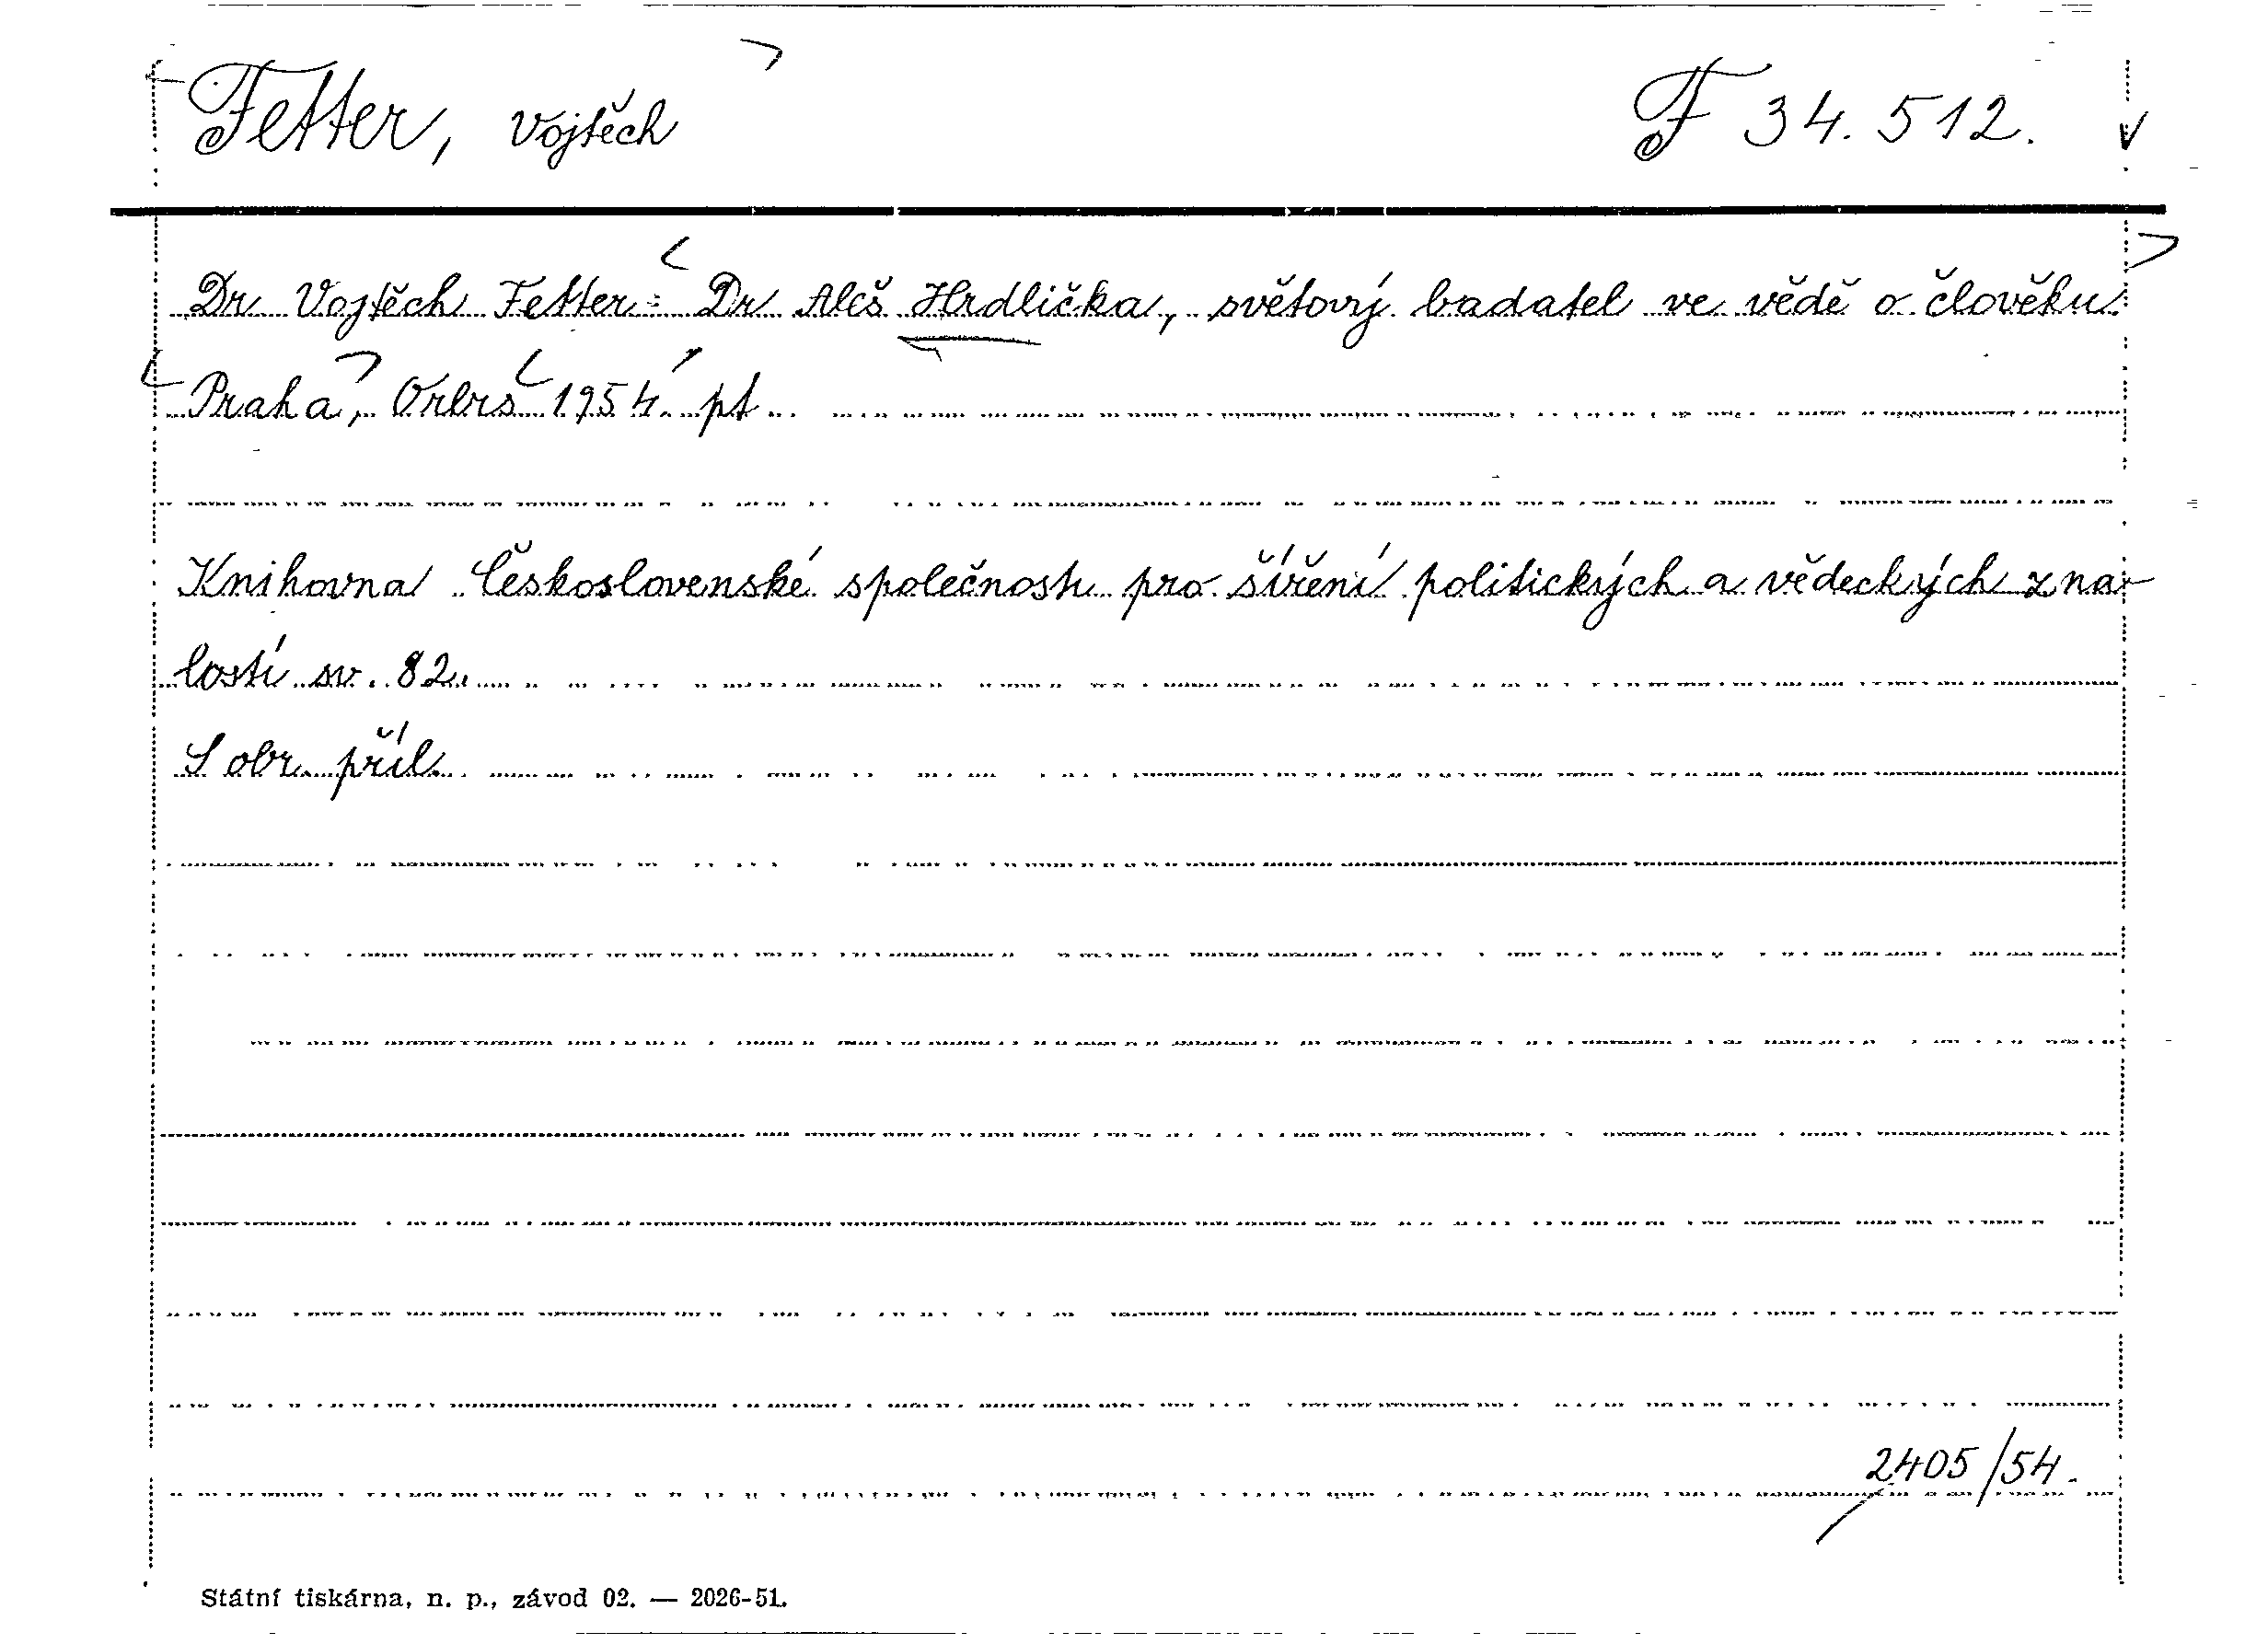 Fetter, Vojtěch
F 34.512.
Dr Vojtěch Fetter: Dr Aleš Hrdlička, světový badatel ve vědě o člověku
Praha, Orbis 1954. pt.
Knihovna Československé společnosti pro šíření politických a vědeckých zna-
lostí sv. 82.
S obr. příl.
2405/54.
Státní tiskárna, n. p., závod 02. — 2026-51.